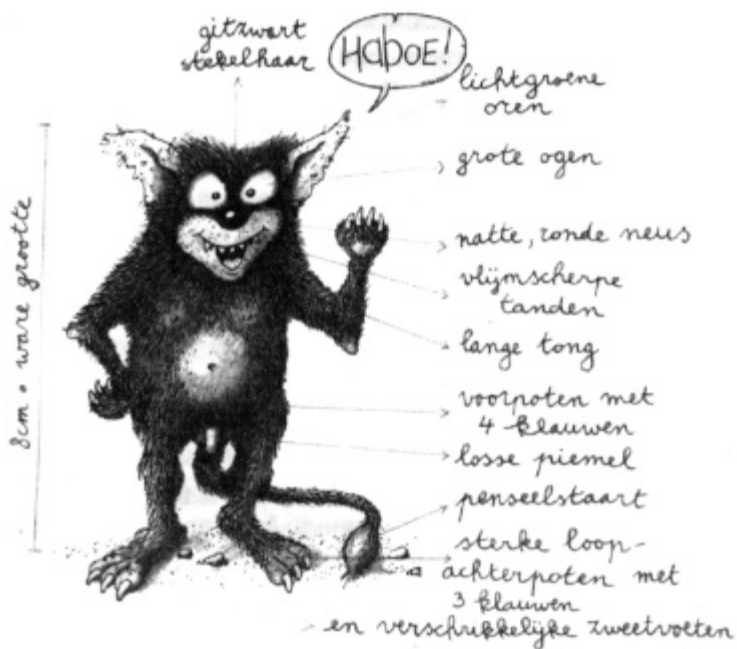 gitzwart
stekelhaar
HaboE!
lichtgroene
oren
grote ogen
natte, ronde neus
vlijmscherpe
tanden
lange tong
voorpoten met
4 klauwen
losse piemel
penseelstaart
sterke loop-
achterpoten met
3 klauwen
en verschrikkelijke zweetvoeten
8cm • ware grootte